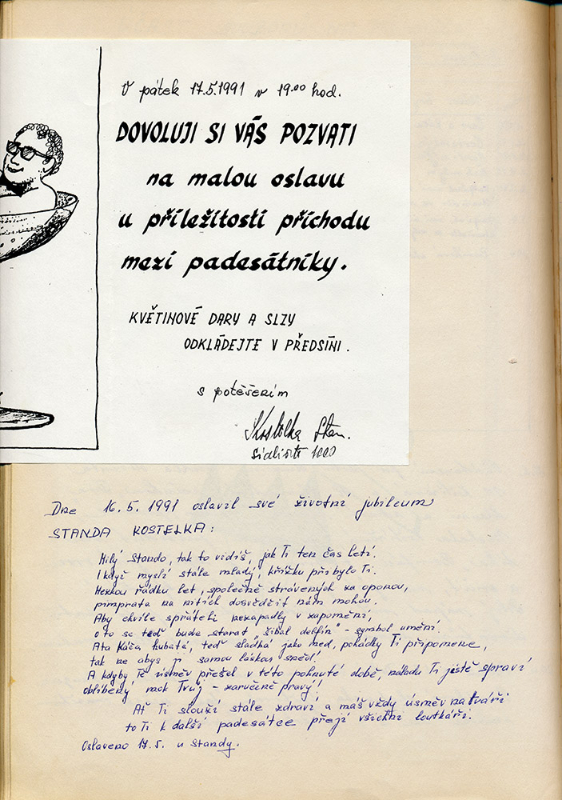 V pátek 17.5.1991 v 19⁰⁰ hod.
DOVOLUJI SI VÁS POZVATI
na malou oslavu
u příležitosti příchodu
mezi padesátníky.
KVĚTINOVÉ DARY A SLZY
ODKLÁDEJTE V PŘEDSÍNI.
s potěšením
Kostelka Stan.
Sídliště 1000
Dne 16.5.1991 oslavil své životní jubileum
STANDA KOSTELKA:
Milý Stando, tak to vidíš, jak Ti ten čas letí.
I když myslí stále mladý, křížku přibylo Ti.
Hezkou řádku let, společně strávených za oponou,
pimprata na nitích dosvědčit nám mohou.
Aby chvíle spřátelí nezapadly v zapomnění,
o to se teď bude starat "žibal dolfín" - symbol umění.
Ata Káča zubatá, teď sladká jako med, pohádky Ti připomene,
tak ne abys ji samou láskou snědl.
A kdyby Tě úsměv přešel v této pohnuté době, náladu Ti jistě spraví
oblíbený mok Tvůj - zaručeně pravý!
Ať Ti slouží stále zdraví a máš vždy úsměv na tváři
to Ti k další padesátce přejí všichni loutkáři.
Oslaveno 17.5. u Standy.